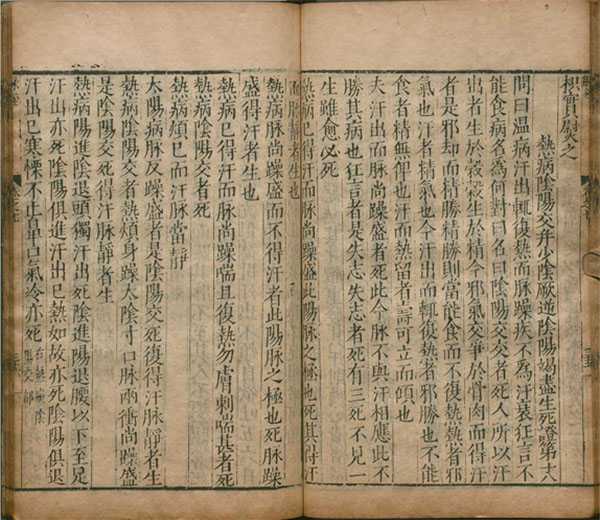 實之
熱病陰陽交并少陰厥逆陰陽竭盡生死證第十八
問曰温病汗出輒復熱而脉躁疾不為汗衰狂言不
能食病名為何對曰名曰陰陽交交者死人所以汗
出者生於穀穀生於精今邪氣交爭於骨肉而得汗
者是邪却而精勝精勝則當能食而不復熱熱者邪
氣也汗者精氣也今汗出而輒復熱者邪勝也不能
食者精無俾也汗而熱留者壽可立而傾也
夫汗出而脉尚躁盛者死此今脉不與汗相應此不
勝其病也狂言者是失志失志者死有三死不見一
生雖愈必死
熱病已得汗而脉尚躁盛此陽脉之極也死其得汗
而脉靜者生也
熱病脉尚躁盛而不得汗者此陽脉之極也死脉躁
盛得汗者生也
熱病已得汗而脉尚躁喘且復熱勿膚刺喘甚者死
熱病陰陽交者死
熱病煩已而汗脉當靜
太陽病脉反躁盛者是陰陽交死復得汗脉靜者生
熱病陰陽交者熱煩身躁太陰寸口脉兩衝尚躁盛
是陰陽交死得汗脉靜者生
熱病陽進陰退頭獨汗出死陰進陽退腰以下至足
汗出亦死陰陽俱進汗出已熱如故亦死陰陽俱退
汗出已寒慄不止鼻口氣冷亦死
右熱病陰
陽交部